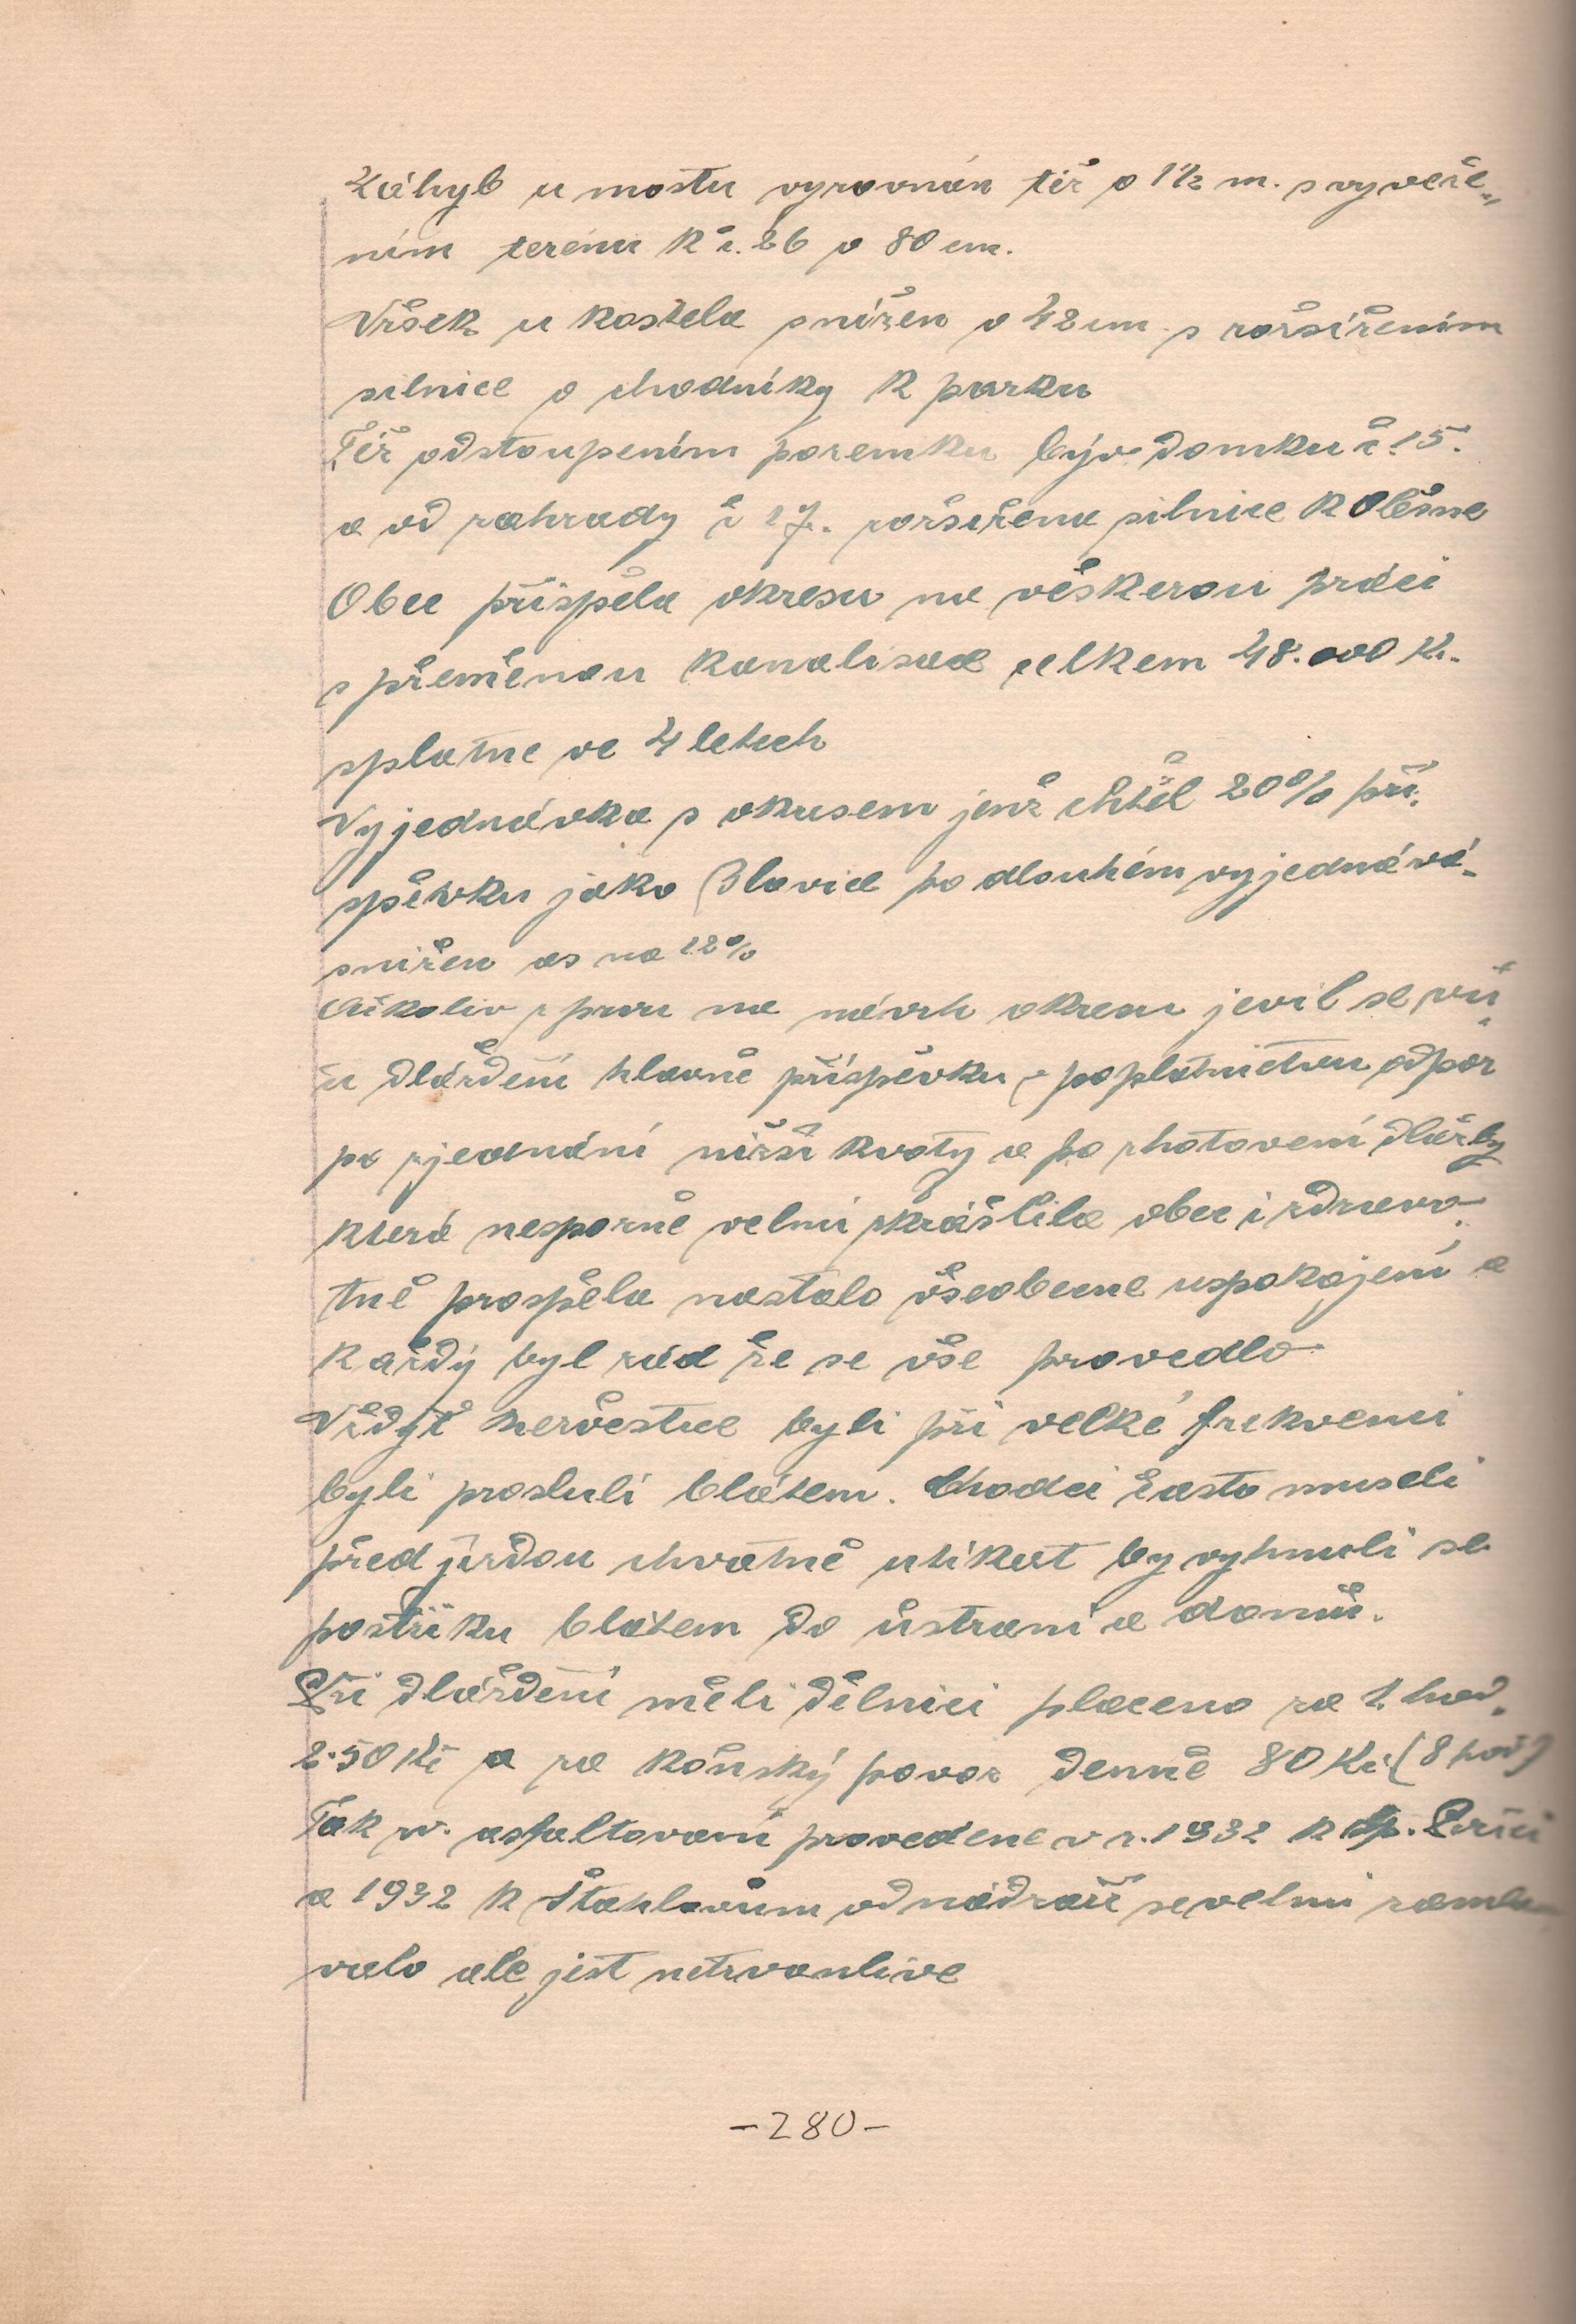 Záhyb u mostu vyrovnán též o 1½ m. s vyveže„
ním terénu k č. 26 o 80 cm.
Vršek u kostela snížen o 42 cm s rozšířením
silnice o chodníky k parku
Též odstoupením pozemku býv. domku č. 15.
a od zahrady č 17. rozšířena silnice k Olešne
Obec přispěla okresu na veškerou práci
s přeměnou kanalisace celkem 48.000 Kč.
splatne ve 4 letech
Vyjednávka s okresem jenž chtěl 20% pří„
spěvku jako Blovice po dlouhém vyjednává„
snížen as na 12%
Ačkoliv z prvu na návrh okresu jevil se vů„
či dláždění hlavně příspěvku poplatnictvu odpor
po zjednání nižší kvoty a po zhotovení dlažby
která nesporně velmi zkrášlila obec i zdravo„
tně prospěla nastalo všeobecne uspokojení a
každý byl rád že se vše provedlo
Vždyť Nezvěstice byli při velké frekvenci
byli prosluli blátem. Chodci často museli
před jízdou chvatně utikat by vyhnuli se
postřiku blátem do ústraní a domů.
Při dláždění měli dělnici placeno za 1 hod.
2·50 Kč a za koňský povoz denně 80 Kč (8 hod)
Tak zv. asfaltovani provedene v r. 1932 k
a 1932 k Štahlavům od nádraží se velmi
valo ale jest netrvanlive
-280-